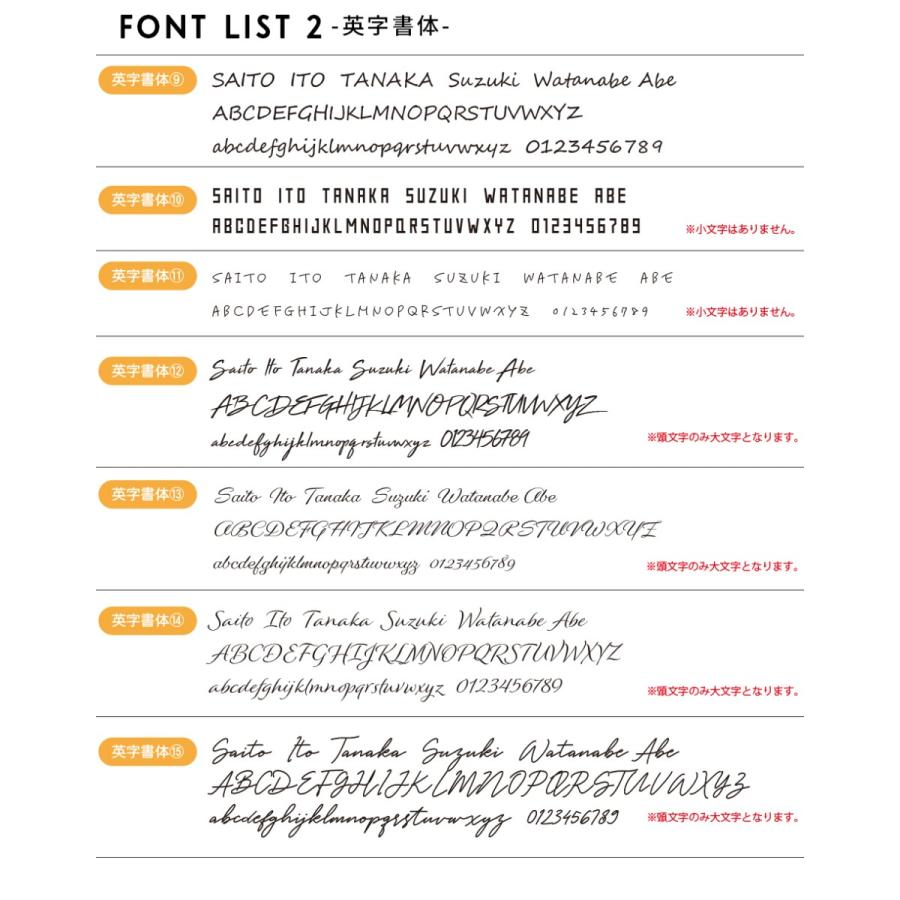 FONT LIST 2 -英字書体-
英字書体⑨ SAITO ITO TANAKA Suzuki Watanabe Abe
ABCDEFGHIJKLMNOPQRSTUVWXYZ
abcdefghijklmnopqrstuvwxyz 0123456789
英字書体⑩ SAITO ITO TANAKA SUZUKI WATANABE ABE
ABCDEFGHIJKLMNOPQRSTUVWXYZ 0123456789 ※小文字はありません。
英字書体⑪ SAITO ITO TANAKA SUZUKI WATANABE ABE
ABCDEFGHIJKLMNOPQRSTUVWXYZ 0123456789 ※小文字はありません。
英字書体⑫ Saito Ito Tanaka Suzuki Watanabe Abe
ABCDEFGHIJKLMNOPQRSTUVWXYZ
abcdefghijklmnopqrstuvwxyz 0123456789 ※頭文字のみ大文字となります。
英字書体⑬ Saito Ito Tanaka Suzuki Watanabe Abe
ABCDEFGHIJKLMNOPQRSTUVWXYZ
abcdefghijklmnopqrstuvwxyz 0123456789 ※頭文字のみ大文字となります。
英字書体⑭ Saito Ito Tanaka Suzuki Watanabe Abe
ABCDEFGHIJKLMNOPQRSTUVWXYZ
abcdefghijklmnopqrstuvwxyz 0123456789 ※頭文字のみ大文字となります。
英字書体⑮ Saito Ito Tanaka Suzuki Watanabe Abe
ABCDEFGHIJKLMNOPQRSTUVWXYZ
abcdefghijklmnopqrstuvwxyz 0123456789 ※頭文字のみ大文字となります。